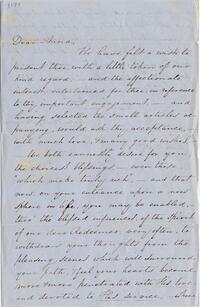 Dear Friend,
We have felt a wish to
present thee with a little token of our
kind regard, — and the affectionate
interest, entertained for thee, in reference
to thy important engagement, — and
having selected the small articles ac-
-panying, would ask thy acceptance, —
with much love, & many good wishes.
We both earnestly desire for you,
the choicest blessings — even those
"which make truly rich", — and that
now, on your entrance upon a new
sphere in life, you may be enabled,
thro' the blessed influences of the Spirit
of our dear Redeemer, very often, to
withdraw your thoughts from the
pleasing scenes which will surround
your path, & feel your hearts become
more & more penetrated with His love
and devoted to His service.